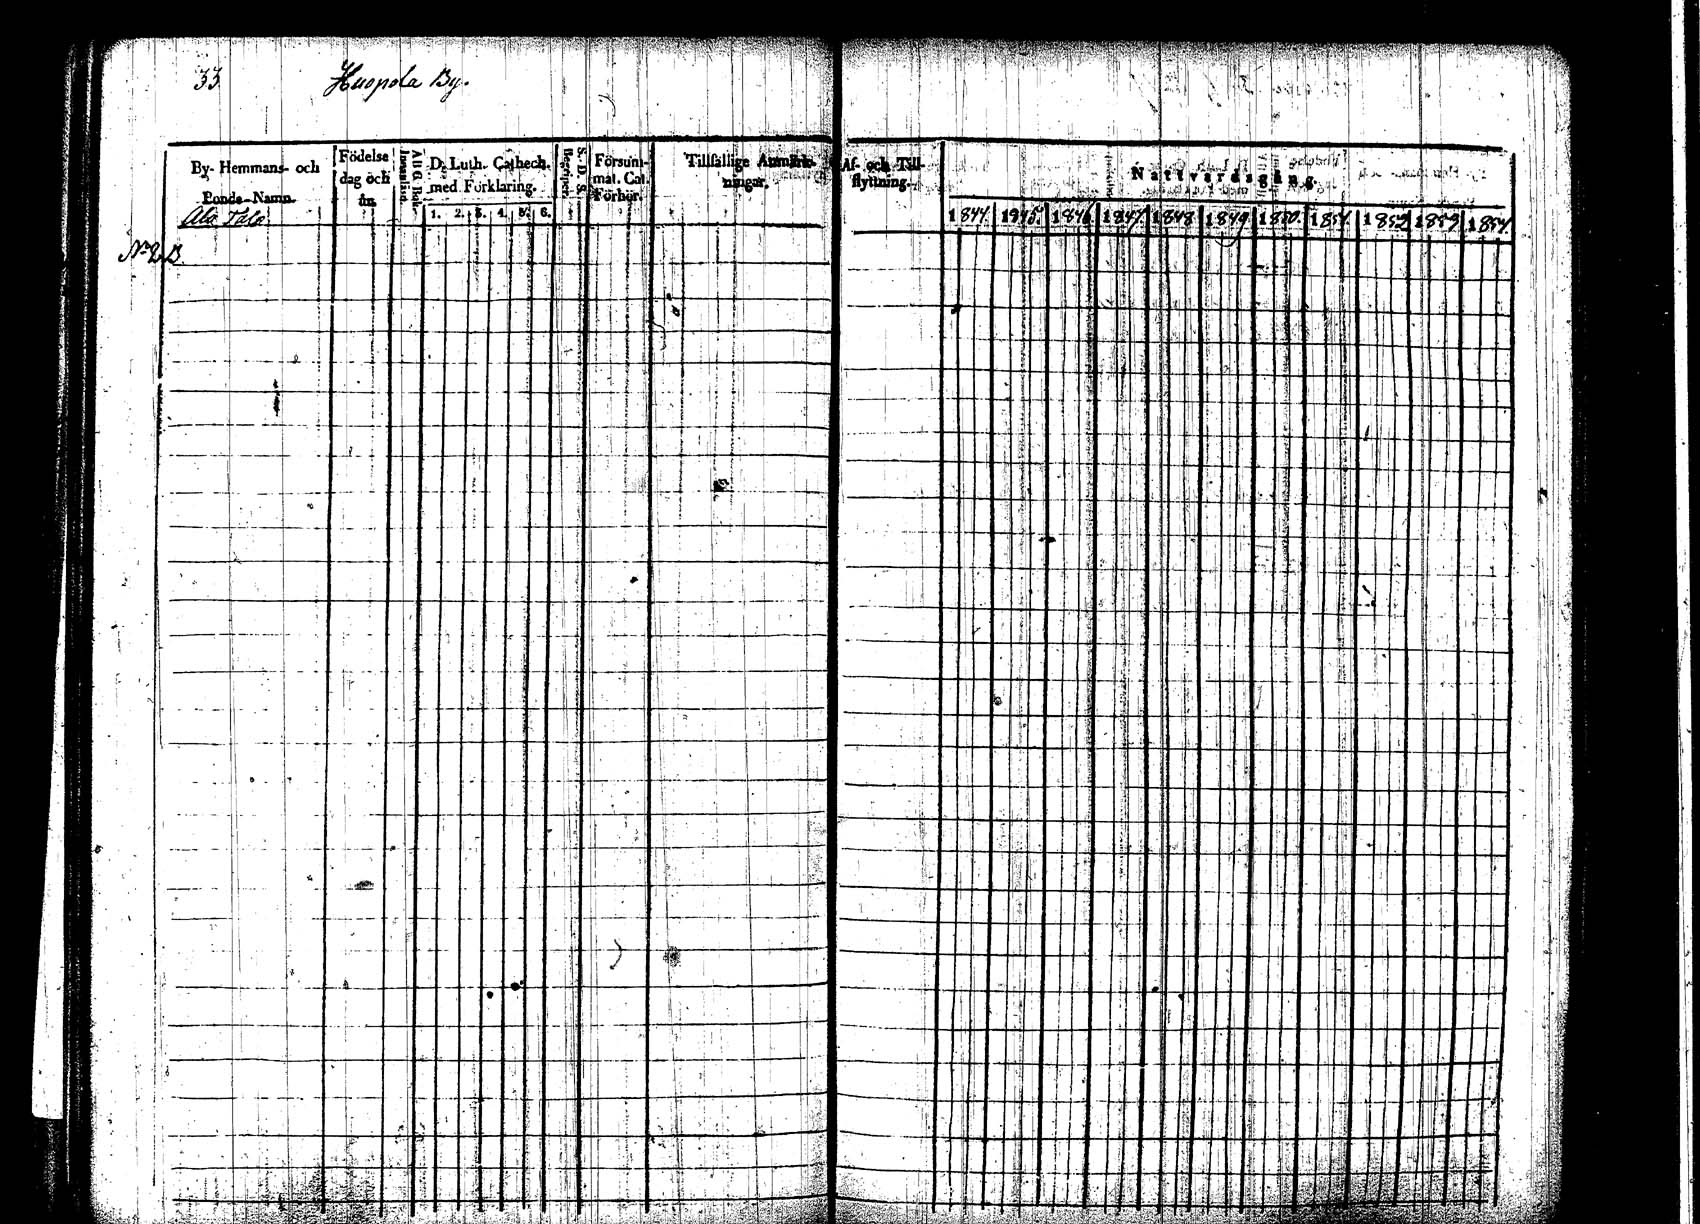 33 Huopola By.
By- Hemmans- och
Bonde-Namn.
Födelse
dag och
år.
A B C Bok
Innanläsn.
D. Luth. Cathech.
med Förklaring.
1. 2. 3. 4. 5. 6.
S. D. S.
Begreper.
Försum-
mat. Cat.
Förhör.
Tillfällige Anmärk-
ningar.
Af- och Till-
flyttning.
Nattvardsgång.
1844. 1845. 1846. 1847. 1848. 1849. 1850. 1851. 1852 1853 1854.
Ala Talo
No 2 B.